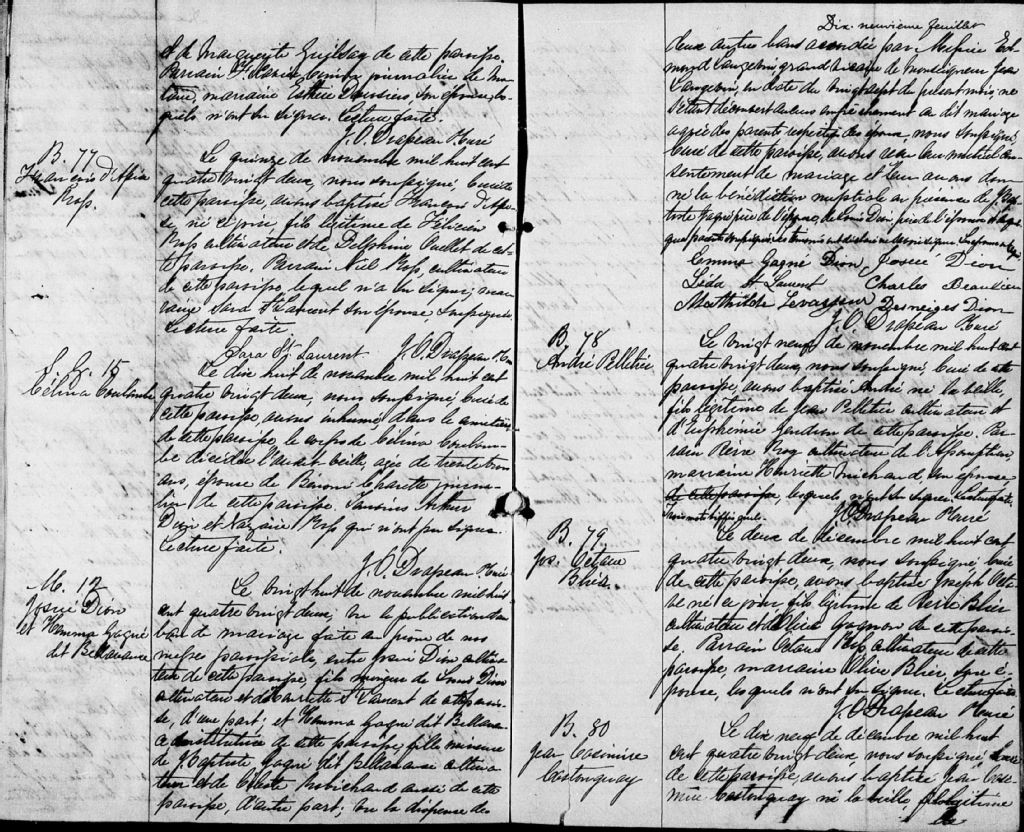 et de Marguerite Guilday de cette paroisse.
Parrain journalier de Ma-
tane, marraine Esther son épouse, les-
quels n'ont su signer. Lecture faite.
J. O. Drapeau Ptre Curé
B. 77
François d'Assise
Ross.
Le quinze de novembre mil huit cent
quatre vingt deux, nous soussigné Curé de
cette paroisse, avons baptisé François d'Assi-
se, né ce jour, fils légitime de Félicien
Ross cultivateur et de Delphine Ouellet de cet-
te paroisse. Parrain Ross, cultivateur
de cette paroisse lequel n'a su signer; mar-
raine Sara St Laurent son épouse, soussignée
Lecture faite.
Sara St. Laurent J. O. Drapeau
S. 15
Célina Coulombe
Le dix huit de novembre mil huit cent
quatre vingt deux, nous soussigné, Curé de
cette paroisse, avons inhumé dans le cimetière
de cette paroisse le corps de Célina Coulom-
be décédée l'avant veille, agée de trente trois
ans, épouse de Charette journa-
lier de cette paroisse. Témoins Arthur
Dion et Nazaire Ross qui n'ont pu signer.
Lecture faite.
J. O. Drapeau Ptre Curé
M. 12
Josué Dion
et Hemma Gagné
dit Bellavance
Le vingt huit de novembre mil huit
cent quatre vingt deux; vu la publication d'un
ban de mariage faite au prone de nos
messes paroissiale, entre Josué Dion, cultiva-
teur de cette paroisse, fils mineur de Louis Dion
cultivateur et de Henriette St Laurent de cette parois-
se, d'une part; et Hemma Gagné dit Bellavan-
ce institutrice de cette paroisse, fille mineure
de J. Baptiste Gagné dit Bellavance cultiva-
teur et de Robichaud aussi de cette
paroisse, d'autre part; vu la dispense de
Dix neuvième feuillet
deux autres bans accordée par Messire Ed-
mond Langevin grand vicaire de Monseigneur Jean
Langevin, en date du vingt sept du présent mois; ne
s'étant découvert aucun empêchement au dit mariage
agréé des parents respectifs des époux, nous soussigné,
Curé de cette paroisse, avons reçu leur mutuel con-
sentement de mariage et leur avons don-
né la bénédiction nuptiale en présence de J. Bap-
tiste Gagné père de l'épouse, de Louis Dion, père de l'époux
Emma Gagné Dion, Josué Dion
Léda St Laurent Charles Beaulieu
Mathilde Levasseur Desneiges Dion
J. O. Drapeau Ptre Curé
B. 78
André Pelletier
Le vingt neuf de novembre mil huit cent
quatre vingt deux, nous soussigné, Curé de cette
paroisse, avons baptisé André né la veille,
fils légitime de Jean Pelletier cultivateur et
d'Euphémie Gendron de cette paroisse. Par-
rain Pierre Roy cultivateur de l'Assomption,
marraine Henriette Michaud, son épouse
de cette paroisse, lesquels n'ont su signer. Lecture faite.
Trois mots biffés nuls.
J. O. Drapeau Ptre Curé
B. 79
Jos. Octave
Blier.
Le deux de décembre mil huit cent
quatre vingt deux, nous soussigné, Curé
de cette paroisse, avons baptisé Joseph Octa-
ve né ce jour fils légitime de Pierre Blier
cultivateur et d'Gagnon de cette parois-
se. Parrain Octave Ross cultivateur de cette
paroisse, marraine Olive Blier, son é-
pouse, lesquels n'ont su signer. Lecture faite.
J. O. Drapeau Ptre Curé
B. 80
Jean Casimire
Castonguay
Le dix neuf de décembre mil huit
cent quatre vingt deux nous soussigné Curé
de cette paroisse avons baptisé Jean Casi-
mire Castonguay né la veille, fils légitime
de